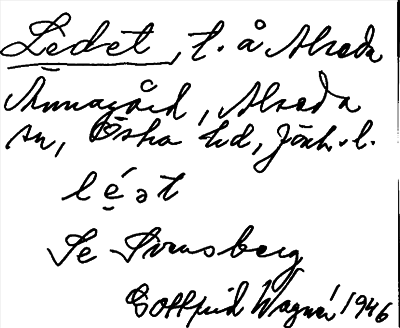 Ledet, t. å Alseda
Annagård, Alseda
sn, Östra hd, Jönk. l.
lé̱ət
Se Svensberg
Gottfrid Wagnér 1946